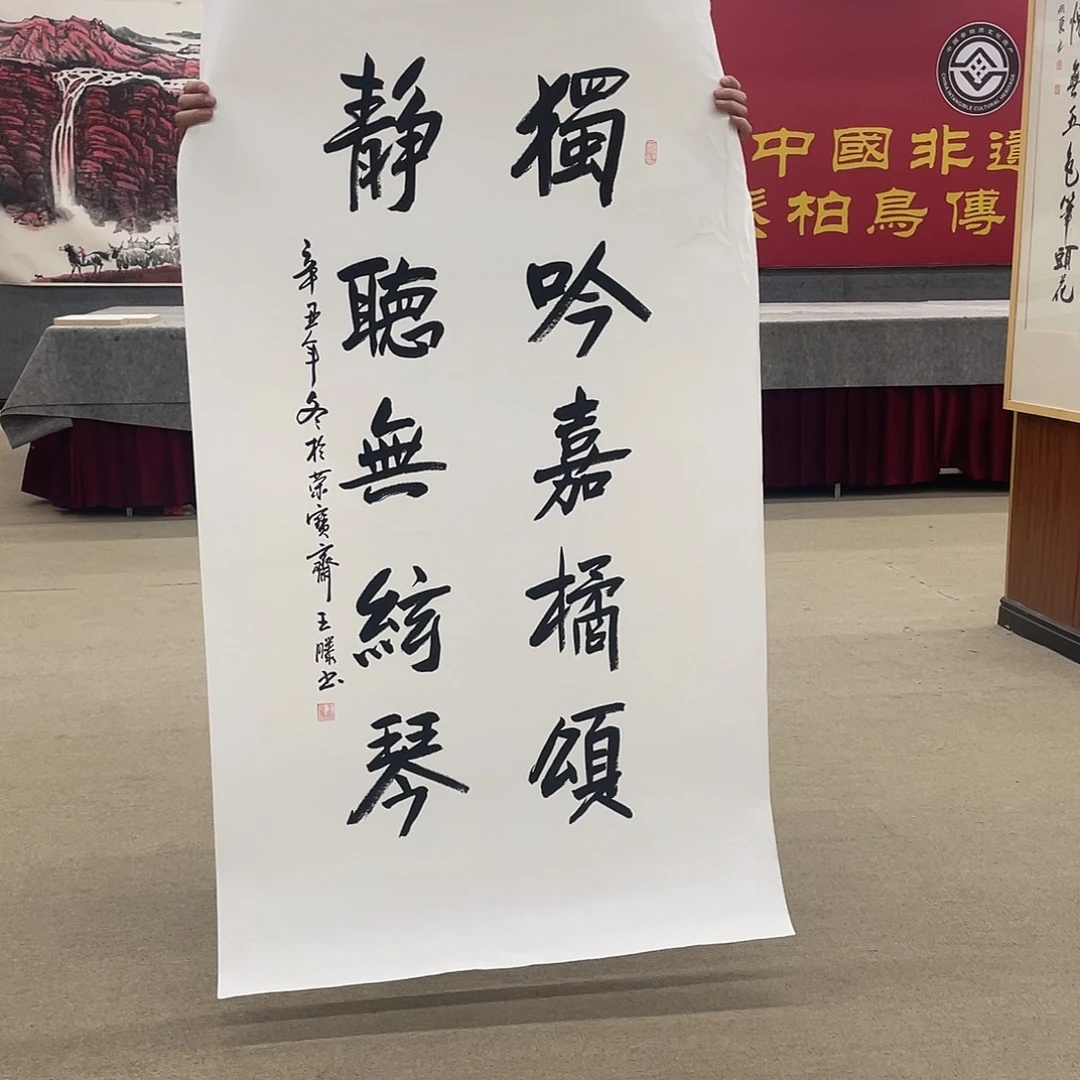 獨吟嘉橘頌
靜聽無絃琴
辛丑年冬於荣寶齋王滕书
中國非遺
柏鳥傳
中国非物质文化遗产
CHINA INTANGIBLE CULTURAL HERITAGE
無五色筆頭花